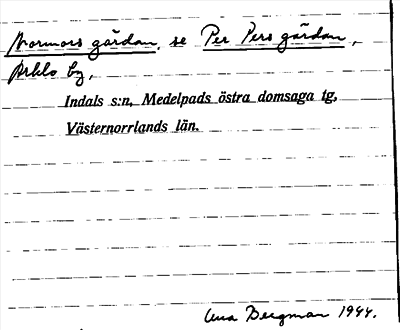 Mormors gårdan, se Per Pers gårdan,
by,
Indals s:n, Medelpads östra domsaga tg,
Västernorrlands län.
Bergman 1944.